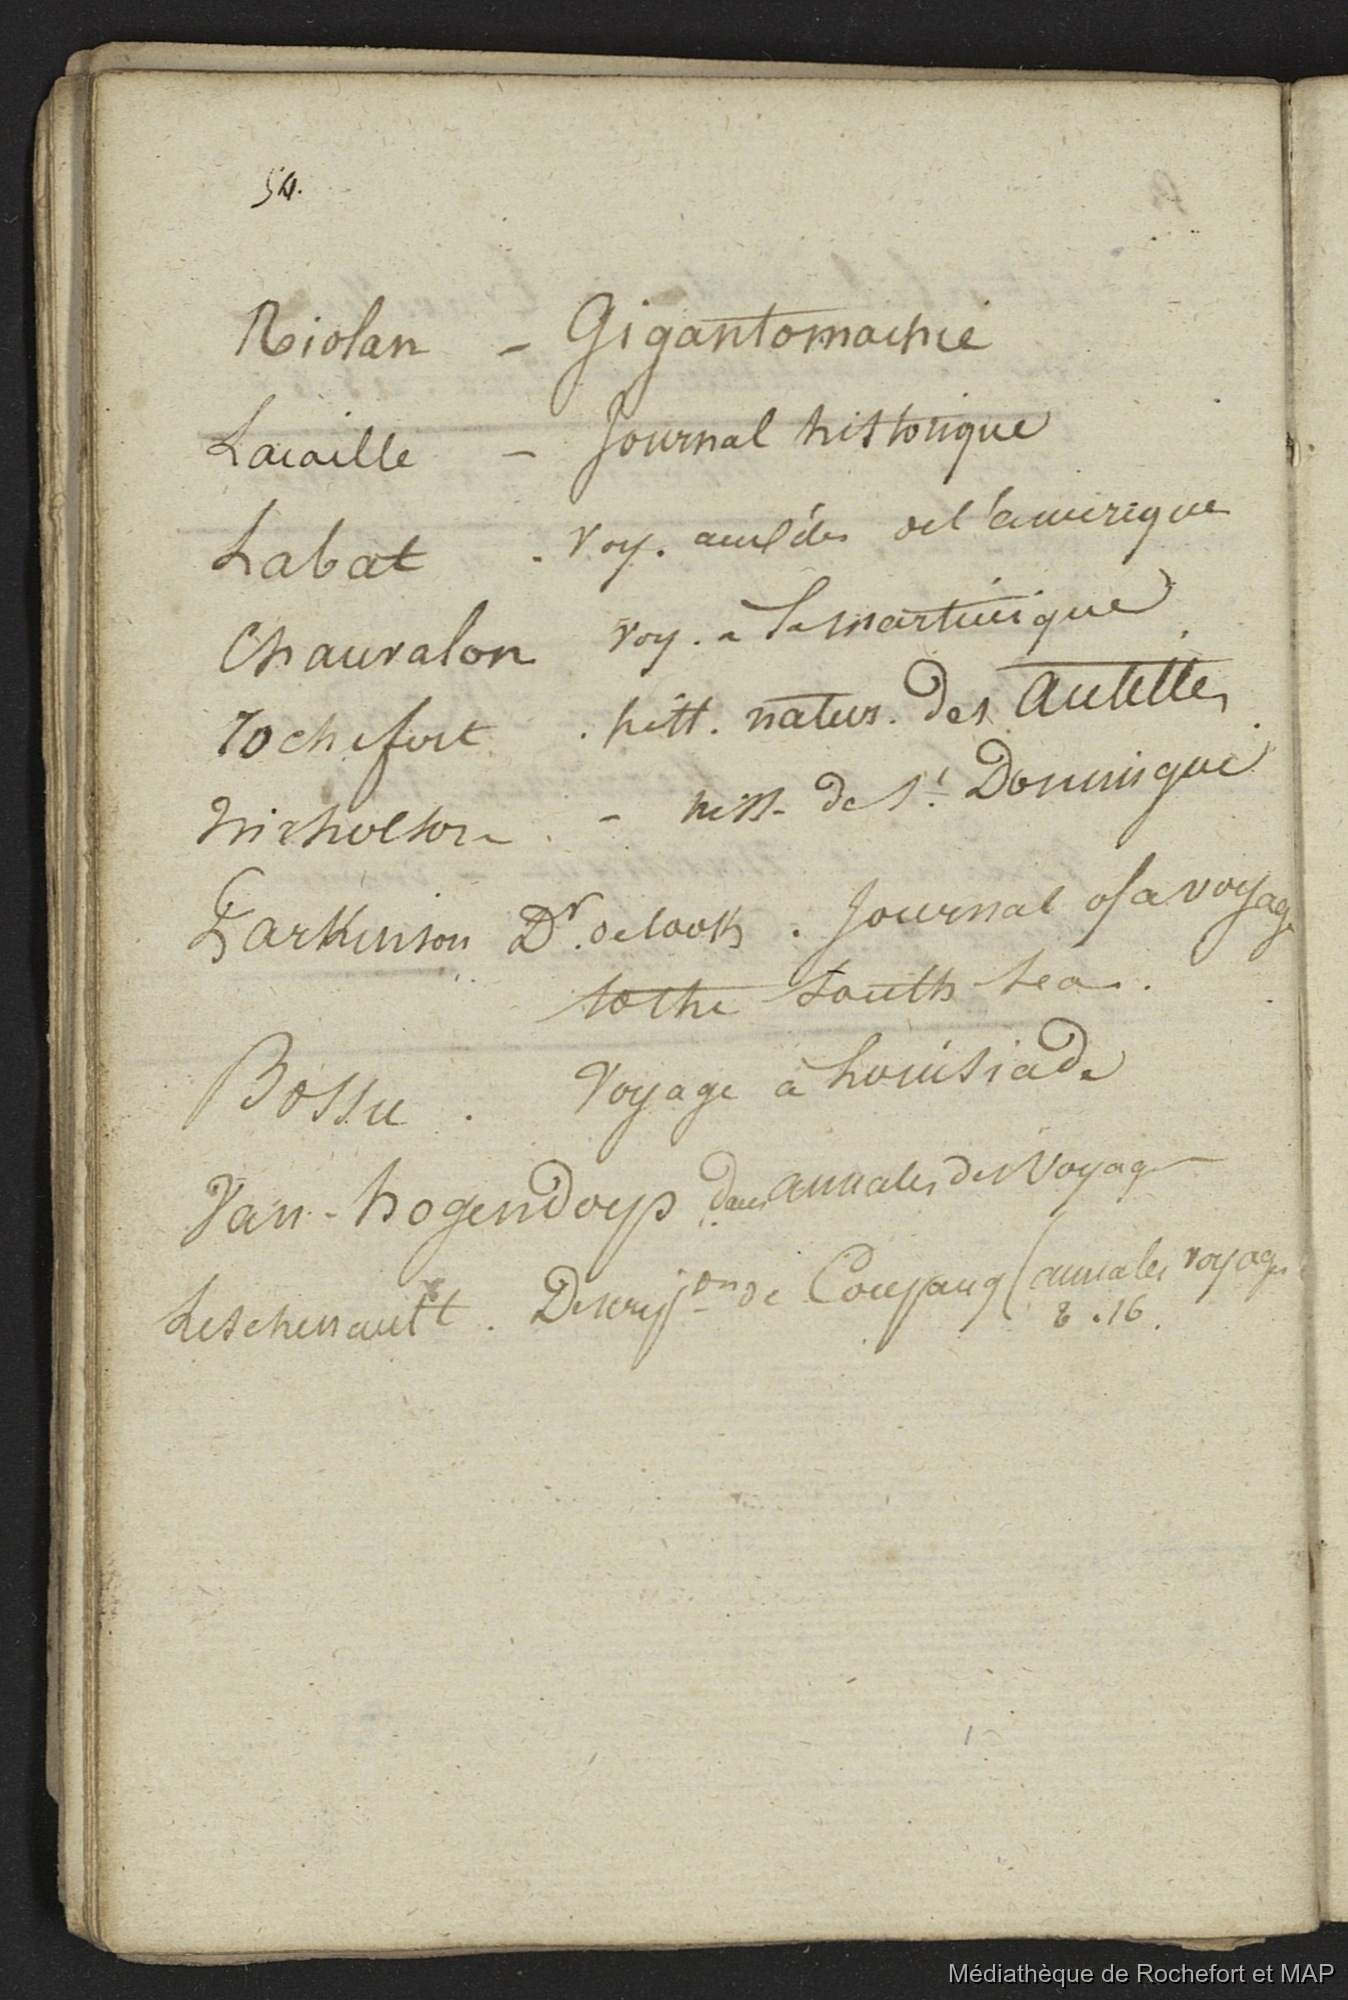 54.
Riolan - Gigantomachie
Lacaille - Journal historique
Labat . Voy. aux iles de l'amerique
Chauvalon voy. a la martinique
rochefort . hist. natur. des antilles
Nicholson . - hist. de St. Domingue
Parkinson Dr. de Cook . Journal of a voyage
to the South Sea.
Bossu . Voyage à Louisiade
Van-hogendorp dans annales des Voyages
Leschenault . Descripon de Coupang (annales voyages
8.16.
Médiathèque de Rochefort et MAP